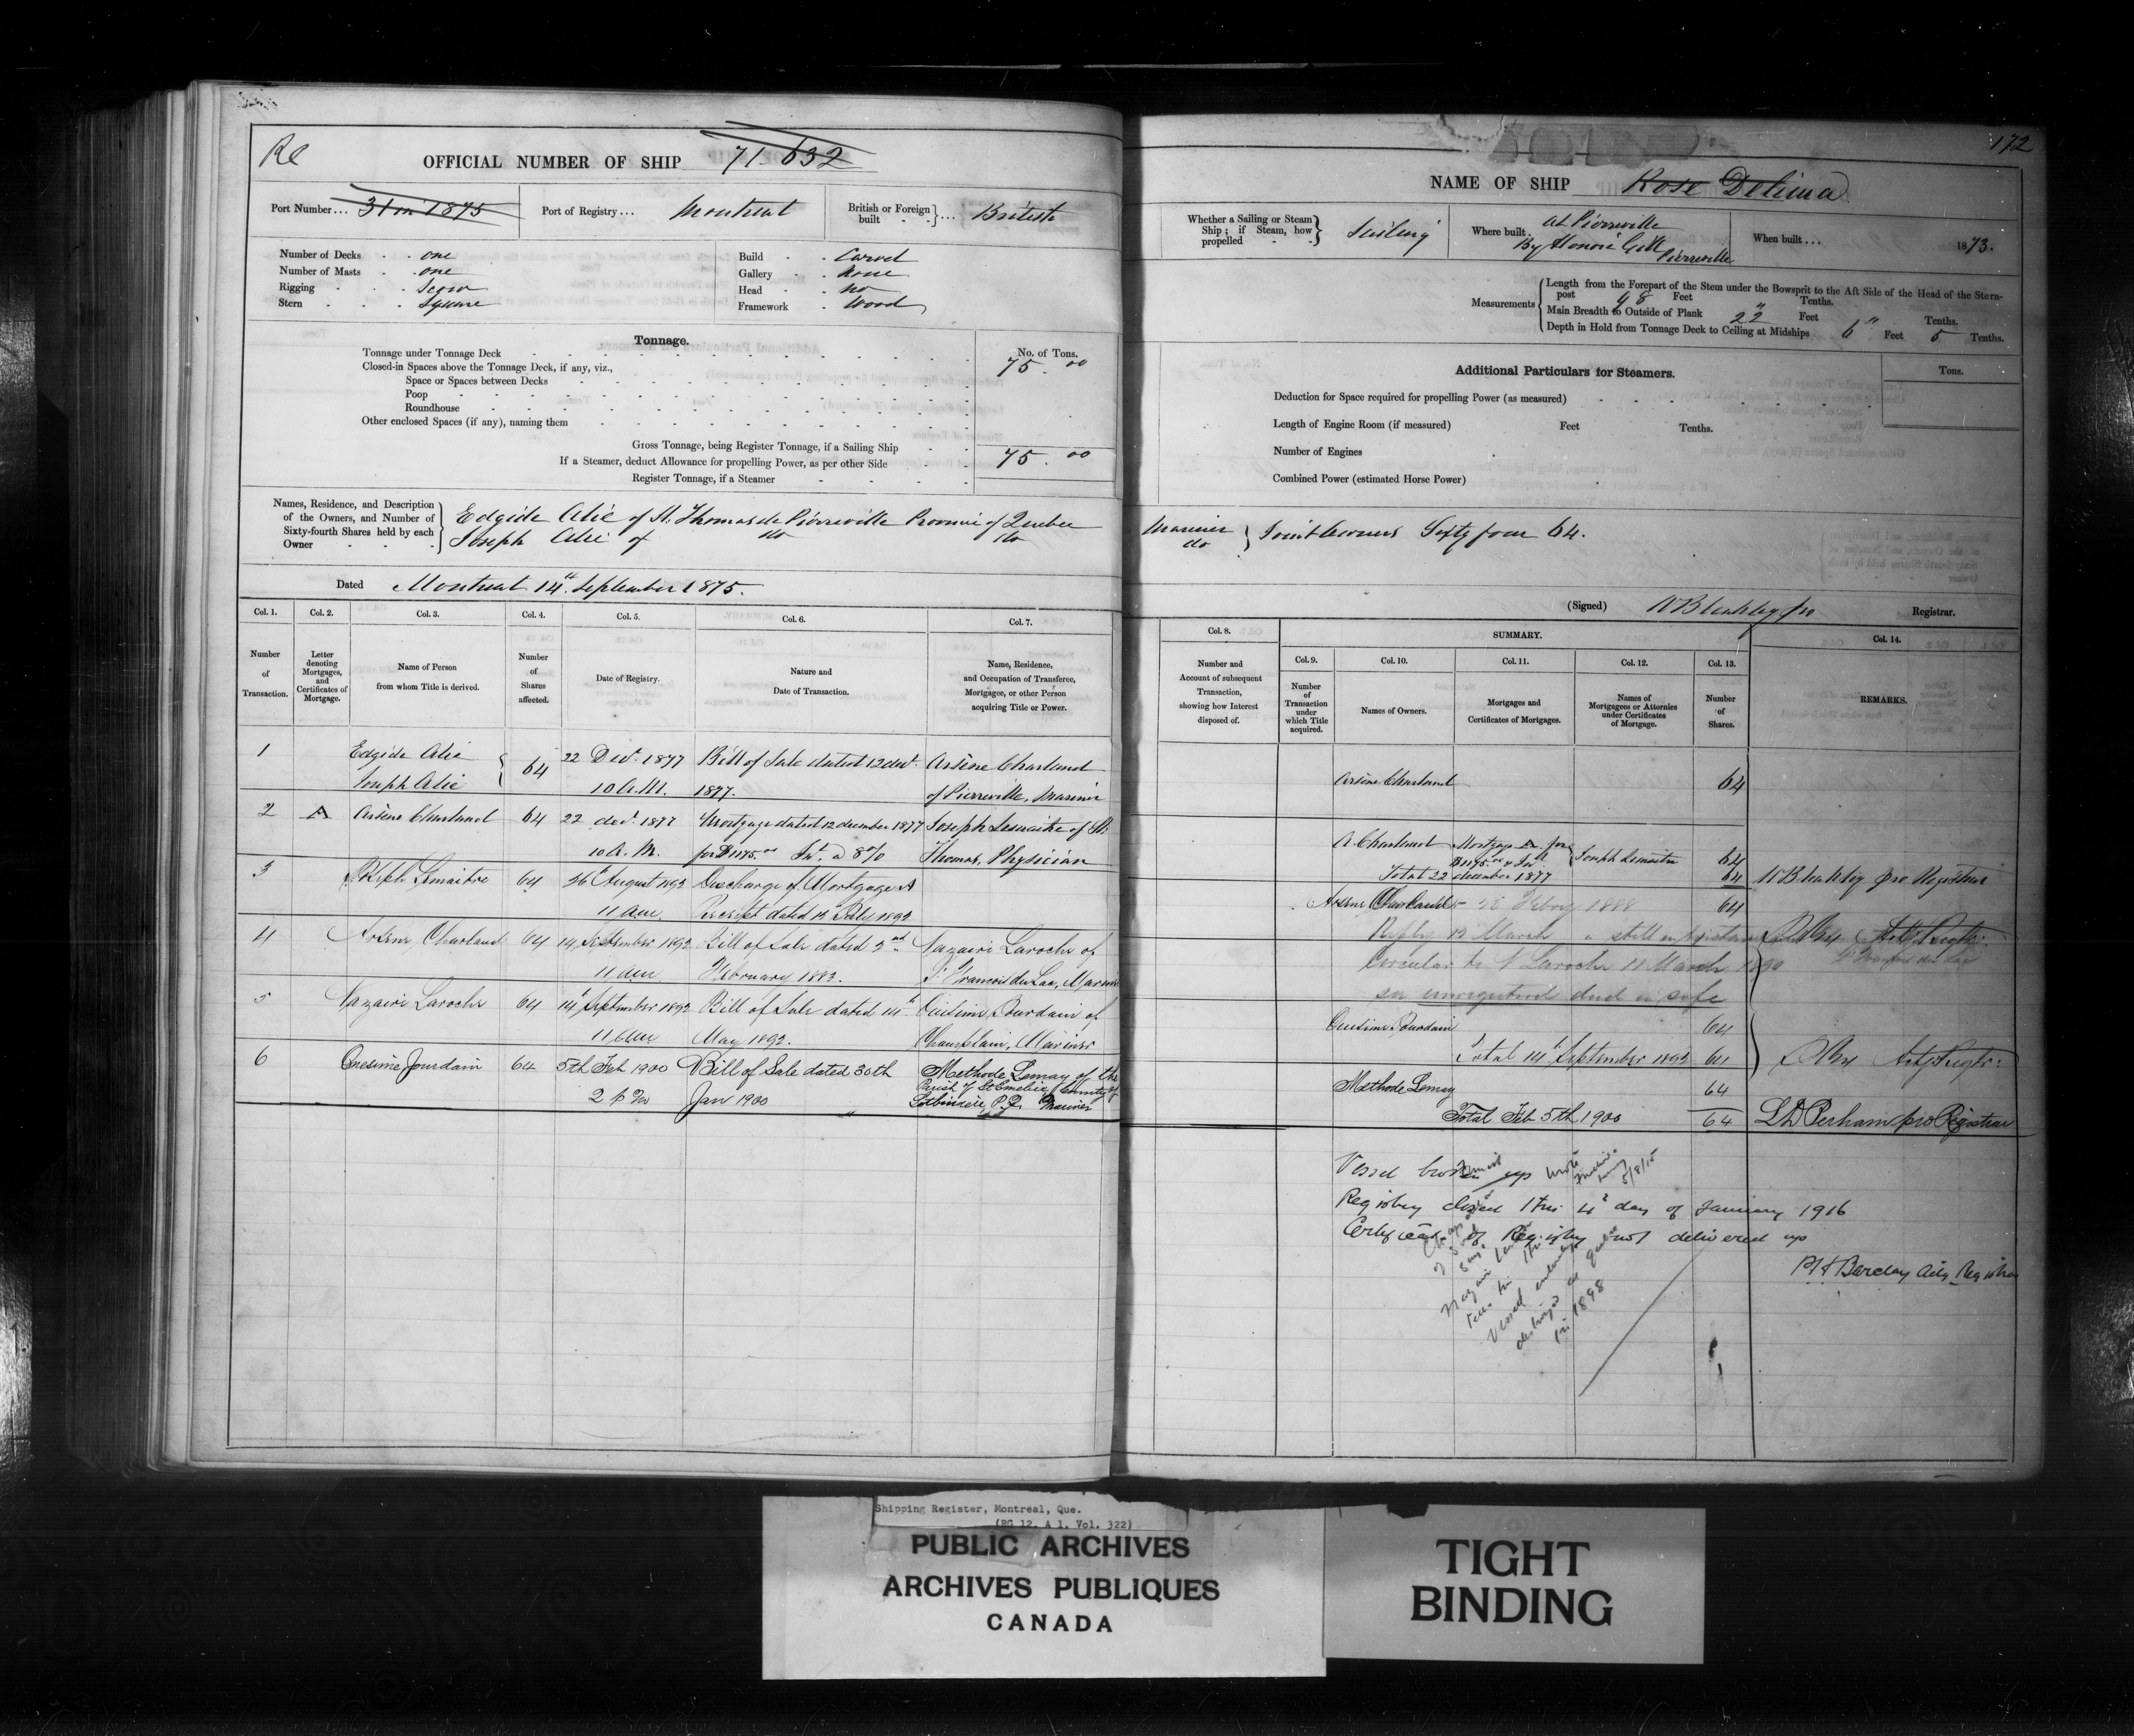 Re
OFFICIAL NUMBER OF SHIP 71 632
Port Number... 31 in 1875
Port of Registry... Montreal
British or Foreign built } ... British
Number of Decks one
Number of Masts one
Rigging Scow
Stern Square
Build Carvel
Gallery None
Head No
Framework Wood
Tonnage.
No. of Tons.
Tonnage under Tonnage Deck 75.00
Closed-in Spaces above the Tonnage Deck, if any, viz.,
Space or Spaces between Decks
Poop
Roundhouse
Other enclosed Spaces (if any), naming them
Gross Tonnage, being Register Tonnage, if a Sailing Ship
If a Steamer, deduct Allowance for propelling Power, as per other Side 75.00
Register Tonnage, if a Steamer
Names, Residence, and Description of the Owners, and Number of Sixty-fourth Shares held by each Owner
Edgide Alie of St. Thomas de Pierreville Province of Quebec
Joseph Alie of do do
Dated Montreal 14th September 1875.
Col. 1. Col. 2. Col. 3. Col. 4. Col. 5. Col. 6. Col. 7.
Number of Transaction.
Letter denoting Mortgages, and Certificates of Mortgage.
Name of Person from whom Title is derived.
Number of Shares affected.
Date of Registry.
Nature and Date of Transaction.
Name, Residence, and Occupation of Transferee, Mortgagee, or other Person acquiring Title or Power.
1 Edgide Alie 64 22 Decr. 1877 Bill of Sale dated 12 decr. Arsène Charland
Joseph Alie 10 A.M. 1877. of Pierreville, Mariner
2 A Arsène Charland 64 22 decr. 1877 Mortgage dated 12 december 1877 Joseph Lemaitre of St.
10 A.M. for $1175.00 Int. @ 8% Thomas, Physician
3 Joseph Lemaitre 64 26 August 1892 Discharge of Mortgage A
11 am Receipt dated 13 July 1892
4 Arsene Charland 64 14 September 1892 Bill of Sale dated 2nd Nazaire Laroche of
11 am February 1883. St Francois du Lac, Mariner
5 Nazaire Laroche 64 14 September 1892 Bill of Sale dated 14th Onesime Jourdain of
11 am May 1892. Champlain, Mariner
6 Onesime Jourdain 64 5th Feb 1900 Bill of Sale dated 30th Methode Lemay of the
Parish of St Emelie County of
2 p m Jan 1900 Lotbiniere, P.Q. Mariner
172
NAME OF SHIP Rose Delima
Whether a Sailing or Steam Ship; if Steam, how propelled } Sailing
Where built. At Pierreville
By Honoré
Pierreville
When built ... 1873.
Measurements
Length from the Forepart of the Stem under the Bowsprit to the Aft Side of the Head of the Stern-
post 98 Feet " Tenths.
Main Breadth to Outside of Plank 22 Feet " Tenths.
Depth in Hold from Tonnage Deck to Ceiling at Midships 6 Feet 5 Tenths.
Additional Particulars for Steamers.
Tons.
Deduction for Space required for propelling Power (as measured)
Length of Engine Room (if measured) Feet Tenths.
Number of Engines
Combined Power (estimated Horse Power)
Mariner
do } Joint Owners Sixty four 64.
(Signed) pro Registrar.
Col. 8. SUMMARY. Col. 14.
Col. 9. Col. 10. Col. 11. Col. 12. Col. 13.
Number and Account of subsequent Transaction, showing how Interest disposed of.
Number of Transaction under which Title acquired.
Names of Owners.
Mortgages and Certificates of Mortgages.
Names of Mortgagees or Attornies under Certificates of Mortgage.
Number of Shares.
REMARKS.
Arsène Charland 64
A. Charland Mortgage A for
$1175.00 & Int. } Joseph Lemaitre 64
Total 22 december 1877 64 pro Registrar
Arsene Charland 64
Febry 1888
Reply 12 March still in existence
Circular to N Laroche 11 March 1890
see unregistered deed in safe
Onesime Jourdain 64
Total 14 September 1892 64 Actg Regtr:
Methode Lemay 64
Total Feb 5th 1900 64 L D Perham pro Registrar
Vessel broken up
5/8/15
Registry closed this 4th day of January 1916
Certificate of Registry not delivered up
Barclay Actg Registrar
vessel entirely
destroyed at
in 1898
Shipping Register, Montréal, Que.
(RG 12, A 1, Vol. 322)
PUBLIC ARCHIVES
ARCHIVES PUBLIQUES
CANADA
TIGHT
BINDING